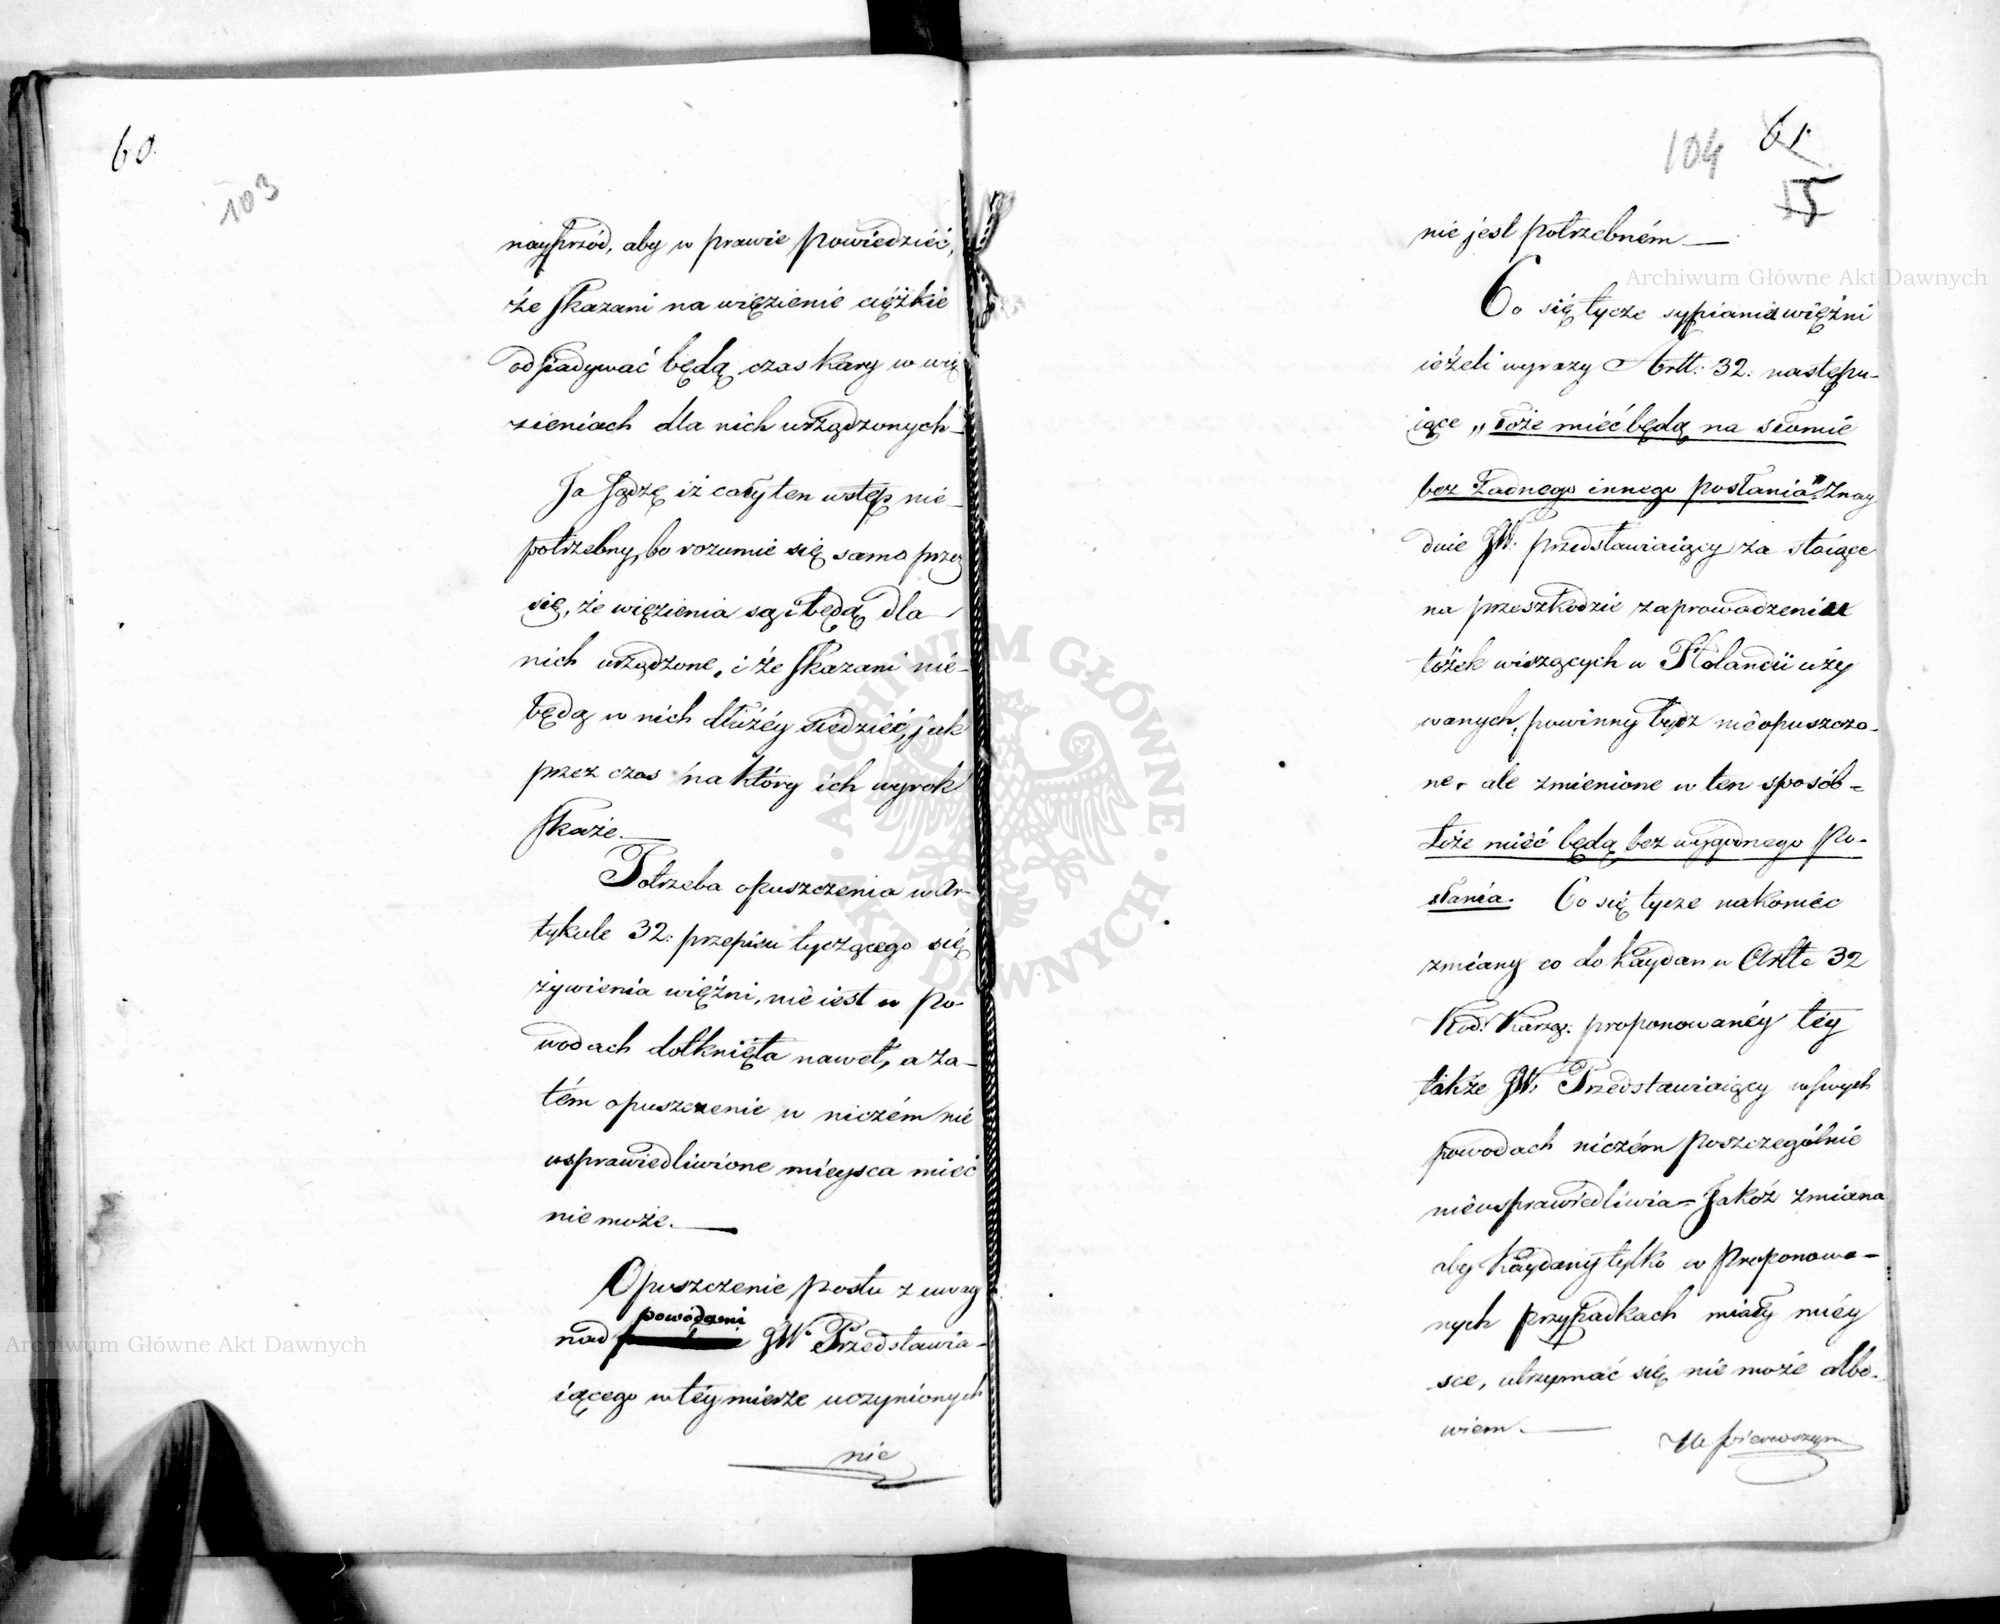 60.
103
nayprzód, aby w prawie powiedzieć,
że skazani na więzienie ciężkie
odsiadywać będą czas kary w wię
zieniach dla nich urządzonych
Ja sądzę iż cały ten wstęp nie-
potrzebny, bo rozumie się samo przez
się, że więzienia są i będą dla
nich urządzone, i że skazani nie-
będą w nich dłużéy siedzieć, jak
przez czas na który ich wyrok
skaże.
Potrzeba opuszczenia w Ar-
tykule 32: przepisu tyczącego się
żywienia więźni, nie iest w po-
wodach dotknięta nawet, a za-
tém opuszczenie w niczém nie
usprawiedliwione mieysca mieć
nie może.
Opuszczenie postu z uwag
powodami
nad JW. Przedstawia-
iącego w téy mierze uczynionych
nie
104
61.
15
nie jest potrzebném
Co się tycze sypiania więźni
ieżeli wyrazy Artt: 32: następu-
iące „Łoże mieć będą na słomie
bez żadnego innego posłania" znay
duie JW. przedstawiaiący za stoiące
na przeszkodzie zaprowadzeniu
łóżek wiszących w Holandii uży
wanych, powinny bydz nie opuszczo-
ne, ale zmienione w ten sposób =
Łoże mieć będą bez wygodnego po-
słania. Co się tycze nakoniec
zmiany co do kaydan w Artte 32
Kod: Karzą: proponowanéy téy
także JW. Przedstawiaiący w swych
powodach niczém poszczególnie
nieusprawiedliwia = Jakóż zmiana
aby kaydany tylko w proponowa-
nych przypadkach miały miey
sce, utrzymać się nie może albo-
wiem.
W pierwszym
Archiwum Główne Akt Dawnych
Archiwum Główne Akt Dawnych
· ARCHIWUM GŁÓWNE · AKT DAWNYCH ·